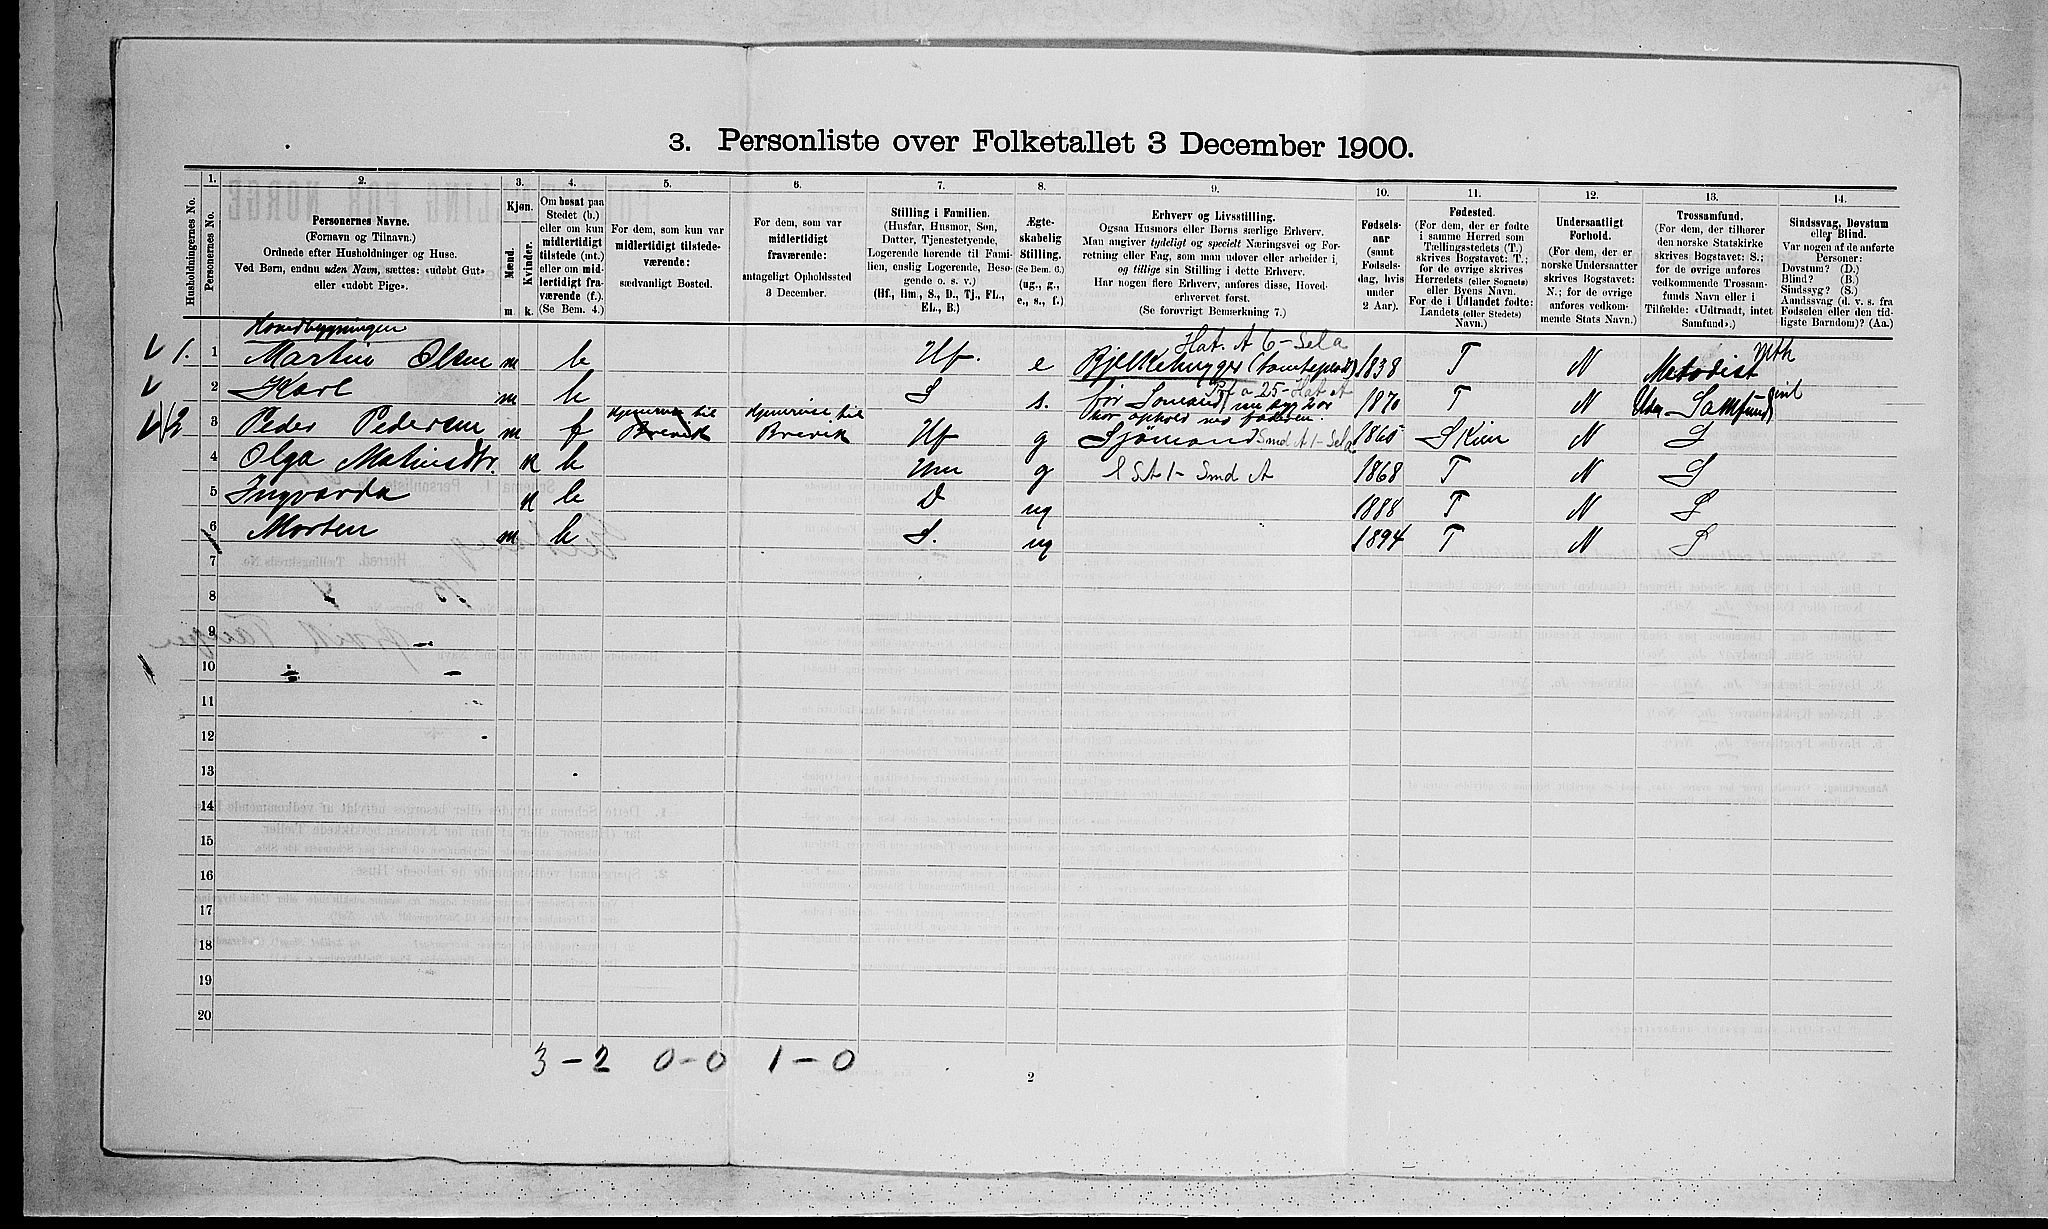 3. Personliste over Folketallet 3 December 1900.
Husholdningernes No.
1.
Personernes No.
2.
Personernes Navne.
(Fornavn og Tilnavn.)
Ordnede efter Husholdninger og Huse.
Ved Børn, endnu uden Navn, sættes: «udøbt Gut»
eller «udøbt Pige».
3.
Kjøn.
Mænd.
Kvinder.
m. k.
4.
Om bosat paa
Stedet (b.)
eller om kun
midlertidigt
tilstede (mt.)
eller om mid-
lertidigt fra-
værende (f.).
(Se Bem. 4.)
5.
For dem, som kun var
midlertidigt tilstede-
værende:
sædvanligt Bosted.
6.
For dem, som var
midlertidigt
fraværende:
antageligt Opholdssted
3 December.
7.
Stilling i Familien.
(Husfar, Husmor, Søn,
Datter, Tjenestetyende,
Logerende hørende til Fami-
lien, enslig Logerende, Besø-
gende o. s. v.)
(Hf., Hm., S., D., Tj., FL.,
EL., B.)
8.
Ægte-
skabelig
Stilling.
(Se Bem. 6.)
(ug., g.,
e., s., f.)
9.
Erhverv og Livsstilling.
Ogsaa Husmors eller Børns særlige Erhverv.
Man angiver tydeligt og specielt Næringsvei og For-
retning eller Fag, som man udøver eller arbeider i,
og tillige sin Stilling i dette Erhverv.
Har nogen flere Erhverv, anføres disse, Hoved-
erhvervet først.
(Se forøvrigt Bemerkning 7.)
10.
Fødsels-
aar
(samt
Fødsels-
dag, hvis
under
2 Aar).
11.
Fødested.
(For dem, der er fødte
i samme Herred som
Tællingsstedets (T.)
skrives Bogstavet: T.;
for de øvrige skrives
Herredets (eller Sognets)
eller Byens Navn.
For de i Udlandet fødte:
Landets (eller Stedets)
Navn.)
12.
Undersaatligt
Forhold.
(For dem, der er
norske Undersaatter
skrives Bogstavet:
N.; for de øvrige
anføres vedkom-
mende Stats Navn.)
13.
Trossamfund.
(For dem, der tilhører
den norske Statskirke
skrives Bogstavet: S.;
for de øvrige anføres
vedkommende Trossam-
funds Navn eller i
Tilfælde: «Udtraadt, intet
Samfund».)
14.
Sindssvag, Døvstum
eller Blind.
Var nogen af de anførte
Personer:
Døvstum? (D.)
Blind? (B.)
Sindssyg? (S.)
Aandssvag (d. v. s. fra
Fødselen eller den tid-
ligste Barndom)? (Aa.)
Hovedbygningen
Hat. A 6 - Sela
1. 1 Martin Olsen m b Hf. e Bjelkehugger (tomteplads) 1838 T N Metodist Mth
2 Karl m b S s. før Sømand, nu syg 2 år 1870 T N Uden Samfund
har ophold ved faderen.
2 3 Peder Pedersen m f Hjemreise til Brevik Hjemreise til Brevik Hf g Sjømand Smd A 1 - Sela 1865 Skien N S
4 Olga Matinsdtr. k b Hm g 1868 T N S
5 Ingvarda k b D ug 1888 T N S
6 Morten m b S. ug 1894 T N S
7
8
9
10
11
12
13
14
15
16
17
18
19
20
3 - 2 0 - 0 1 - 0
2